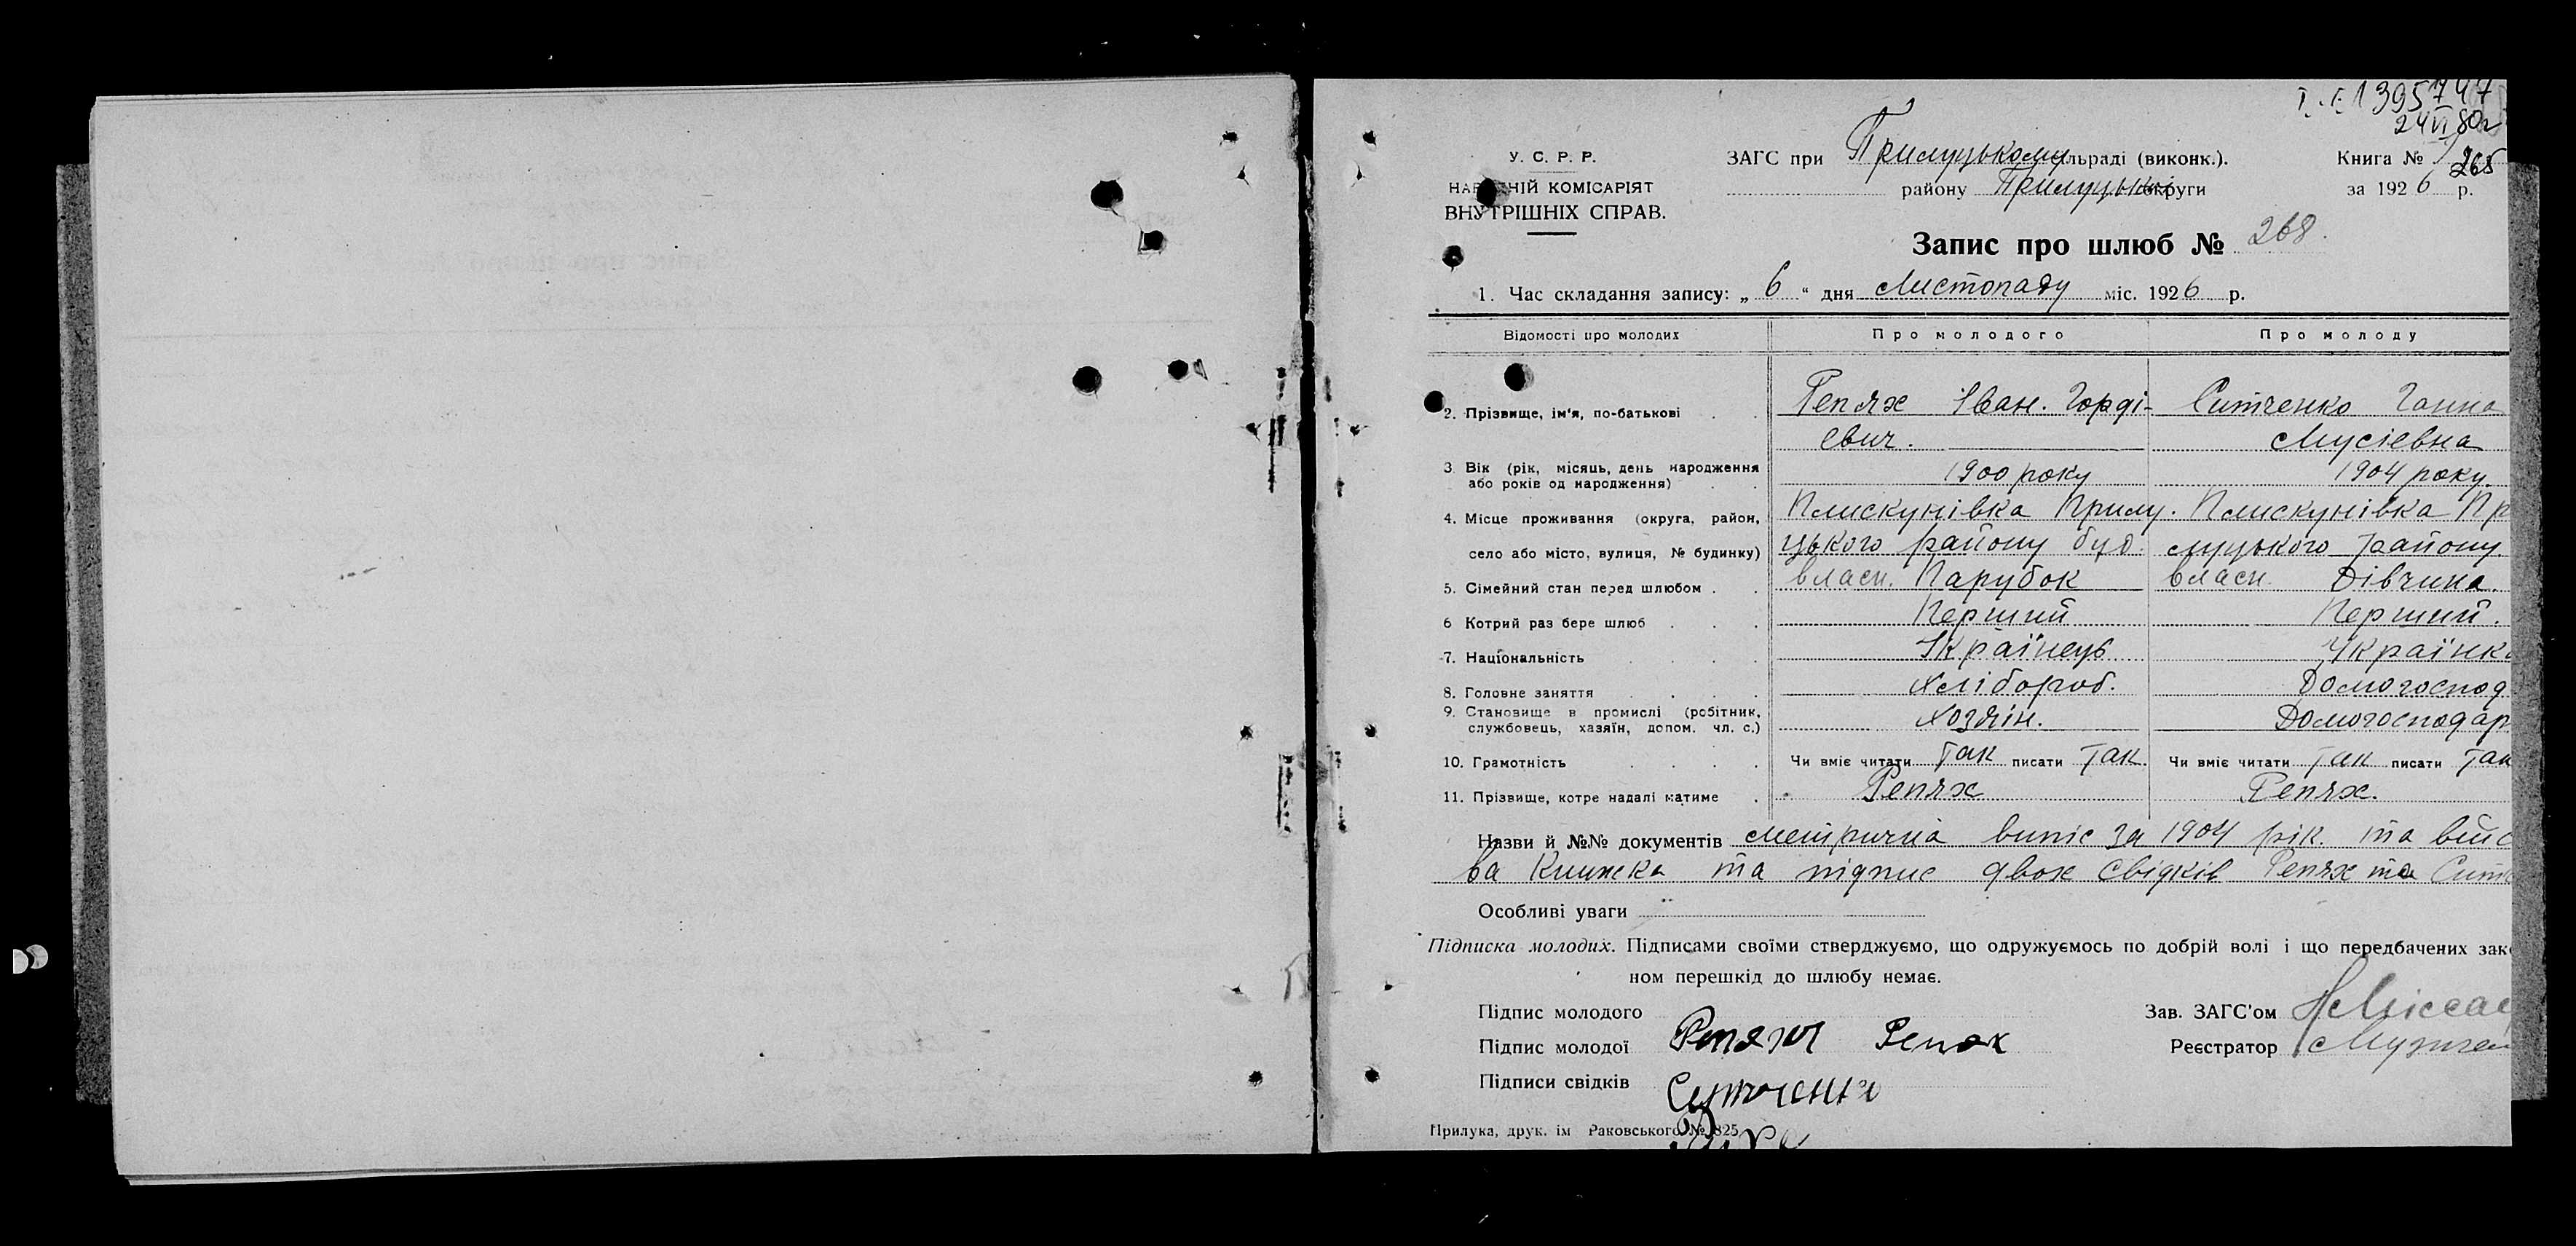 1395747
24 VI 80г
У. С. Р. Р.
НАРОДНІЙ КОМІСАРІЯТ
ВНУТРІШНІХ СПРАВ.
ЗАГС при Прилуцькому льраді (виконк.).
району Прилуцької округи
Книга №
265
за 1926 р.
Запис про шлюб № 268.
1. Час складання запису: „ 6 “ дня Листопаду міс. 1926 р.
Відомості про молодих Про молодого Про молоду
2. Прізвище, ім'я, по-батькові Репях Іван. Горді- Ситченко Ганна
євич. Мусієвна
3. Вік (рік, місяць, день народження 1900 року 1904 року.
або років од народження)
4. Місце проживання (округа, район, Плискунівка Прилу. Плискунівка Пр
село або місто, вулиця, № будинку) цького району буд. луцького району
5. Сімейний стан перед шлюбом власн. Парубок власн. Дівчина.
6 Котрий раз бере шлюб Перший Перший.
7. Національність Українець Українка
8. Головне заняття Хлібороб. Домогоспод
9. Становище в промислі (робітник, Хозяїн. Домогосподар
службовець, хазяїн, допом. чл. с.)
10. Грамотність Чи вміє читати так писати так. Чи вміє читати так писати так
11. Прізвище, котре надалі матиме Репях Репях.
Назви й №№ документів метрична випис за 1904 рік. та війс
ва Книжка та підпис двох свідків Репях та Ситч
Особливі уваги
Підписка молодих. Підписами своїми стверджуємо, що одружуємось по добрій волі і що передбачених зако
ном перешкід до шлюбу немає.
Підпис молодого
Зав. ЗАГС'ом
Підпис молодої Репях Репях
Реєстратор
Підписи свідків Ситченко
Прилука, друк. ім Раковського № 825